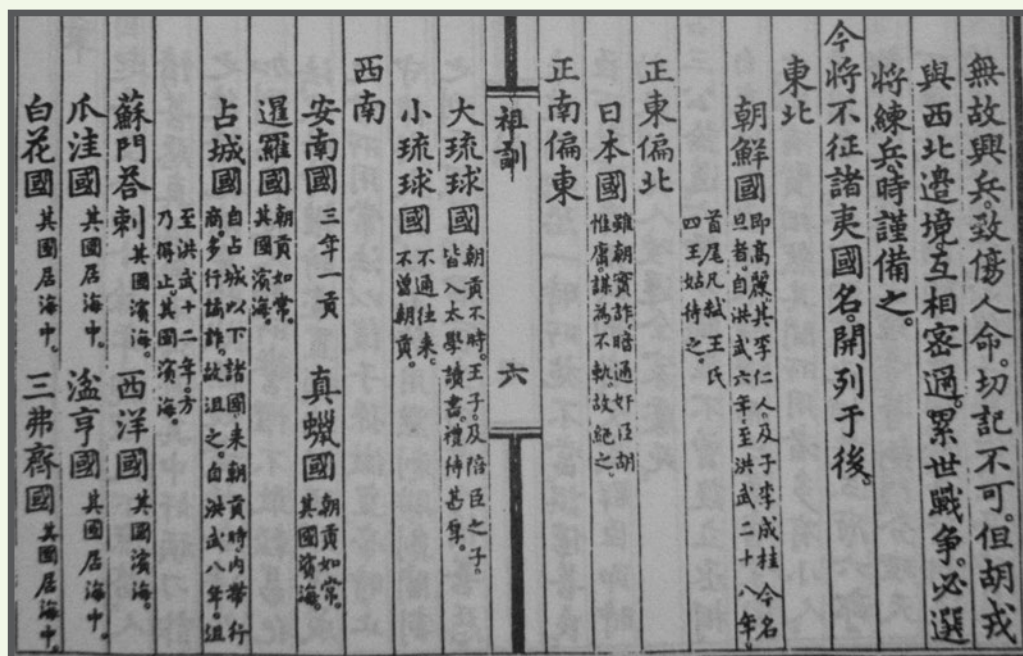 無故興兵。致傷人命。切記不可。但胡戎
與西北邊境。互相密邇。累世戰爭。必選
將練兵。時謹備之。
今將不征諸夷國名。開列于後。
東北
朝鮮國 即高麗。其李仁人。及子李成桂。今名
旦者。自洪武六年。至洪武二十八年。
首尾凡弒王氏
四王。姑待之。
正東偏北
日本國 雖朝實詐。暗通奸臣胡
惟庸。謀為不軌。故絕之。
正南偏東
祖訓 六
大琉球國 朝貢不時。王子。及陪臣之子。
皆入太學讀書。禮待甚厚。
小琉球國 不通往來。
不曾朝貢。
西南
安南國 三年一貢 真蠟國 朝貢如常。
其國濱海。
暹羅國 朝貢如常。
其國濱海。
占城國 自占城以下諸國。來朝貢時。內帶行
商。多行譎詐。故沮之。自洪武八年。沮
至洪武十二年。方
乃得止。其國濱海。
蘇門荅剌 其國濱海。 西洋國 其國濱海。
爪洼國 其國居海中。 湓亨國 其國居海中。
白花國 其國居海中。 三弗齊國 其國居海中。